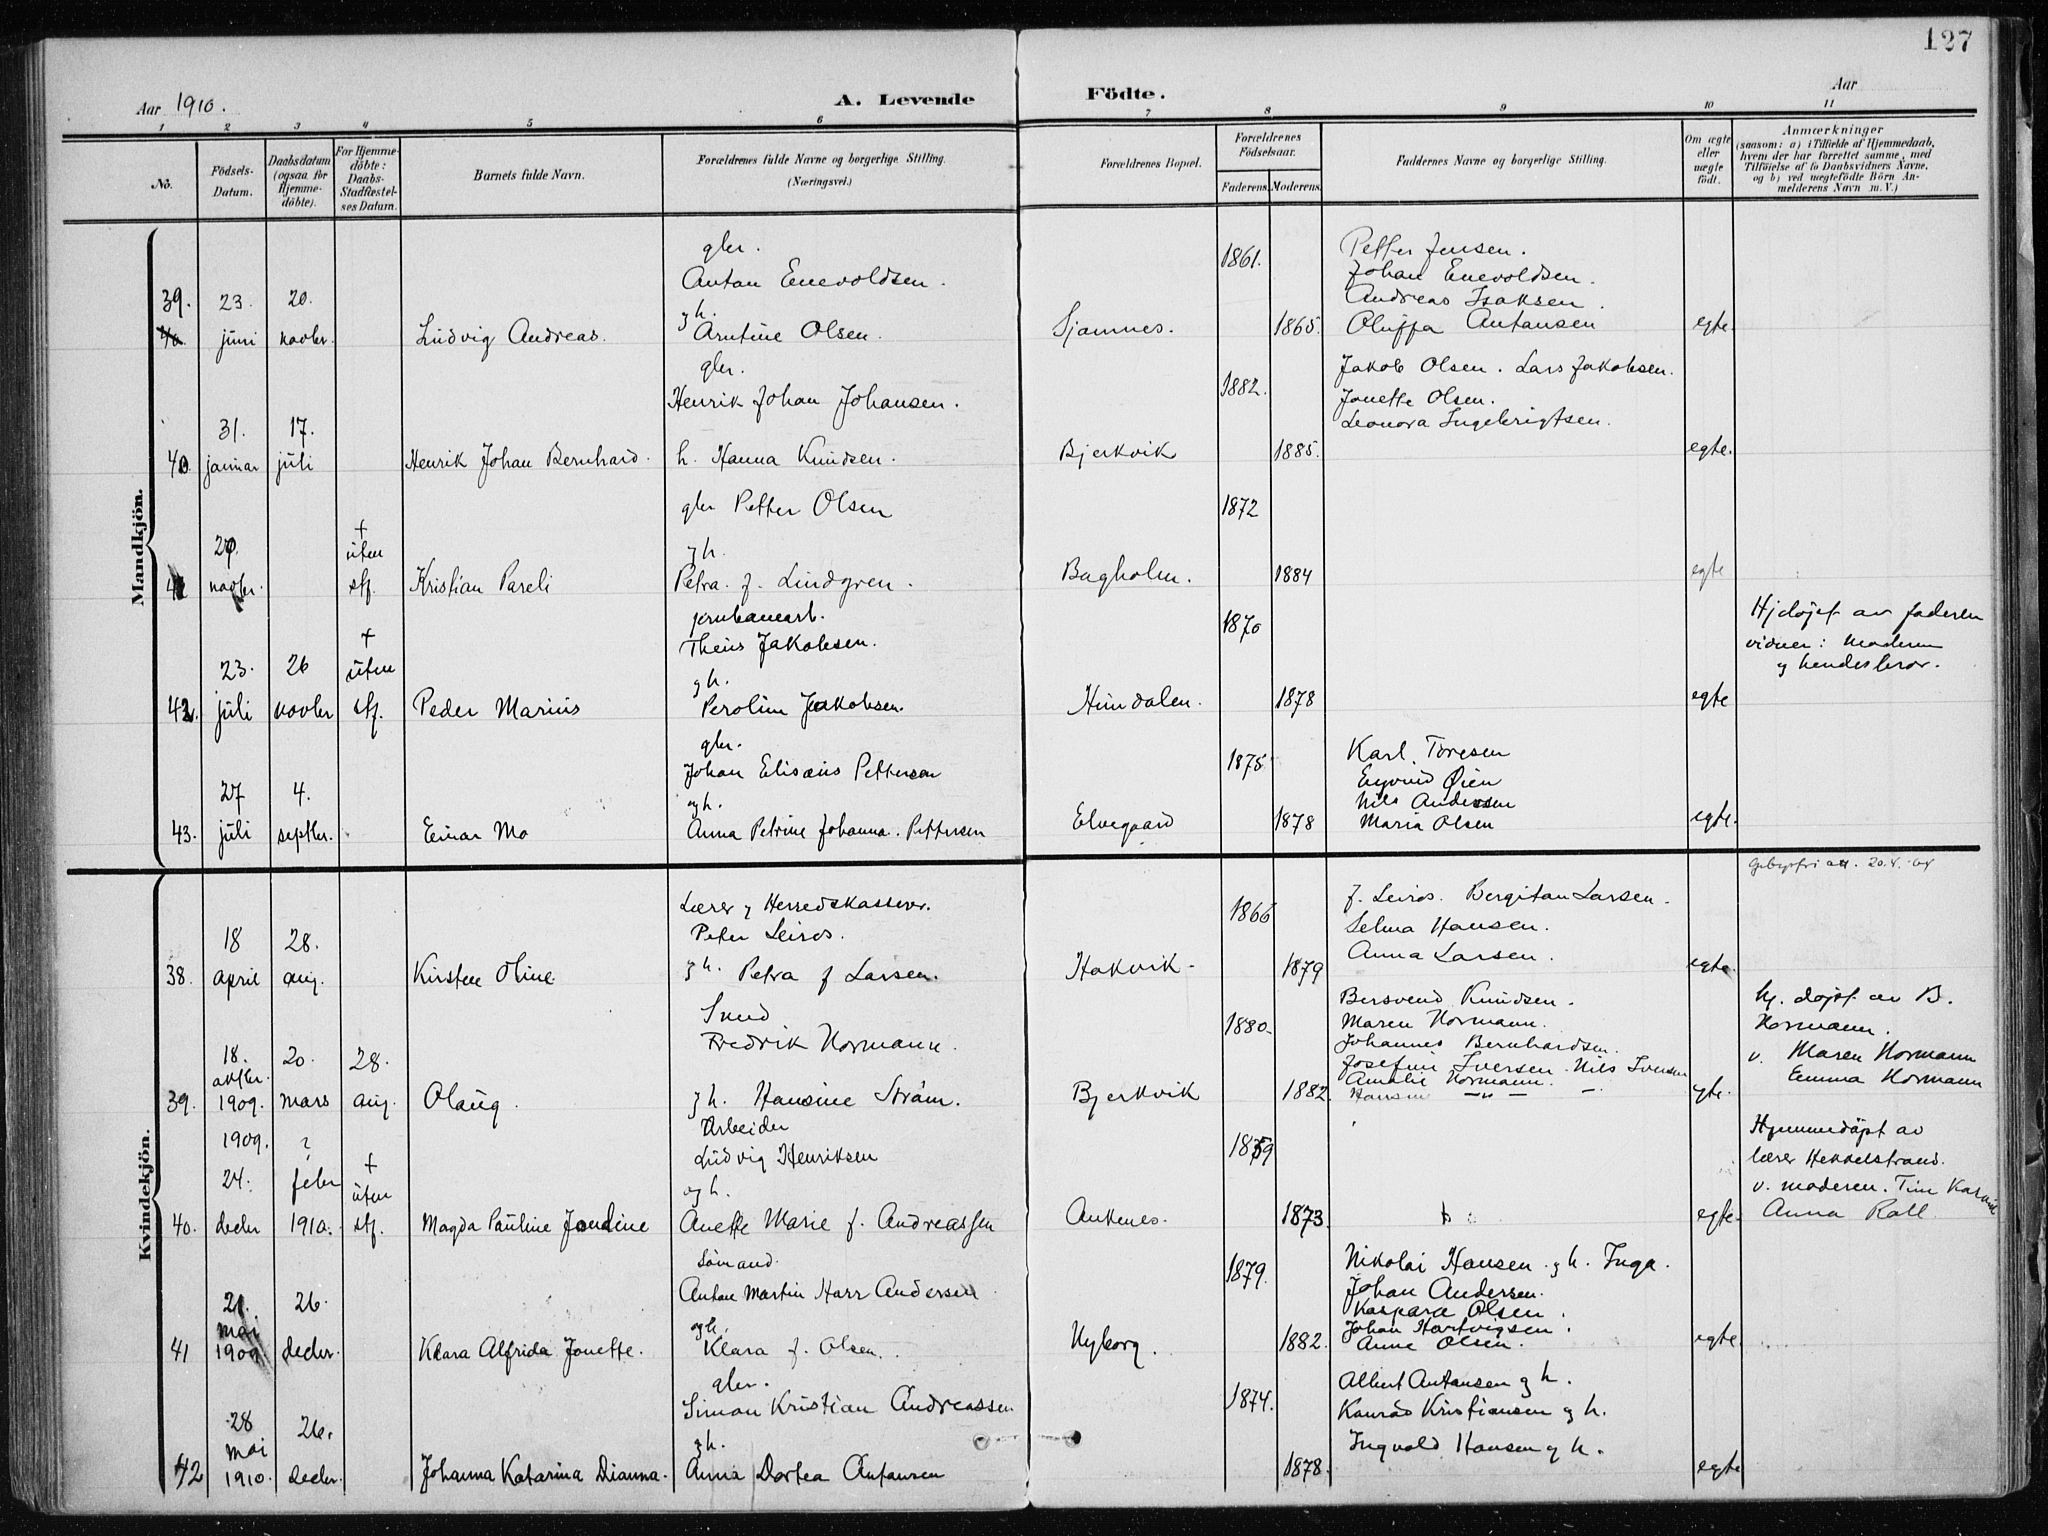 127
Aar 1910. A. Levende Födte. Aar
1 2 3 4 5 6 7 8 9 10 11
No. Födsels-Datum. Daabsdatum (ogsaa for Hjemme-döbte). For Hjemme-döbte: Daabs-Stadfæstel-ses Datum. Barnets fulde Navn. Forældrenes fulde Navne og borgerlige Stilling. (Næringsvei.) Forældrenes Bopæl. Forældrenes Födselsaar. Faderens. Moderens. Faddernes Navne og borgerlige Stilling. Om ægte eller uægte födt. Anmærkninger (saasom: a) i Tilfælde af Hjemmedaab, hvem der har forrettet samme, med Tilföielse af to Daabsvidners Navne, og b) ved uægtefödte Börn An-melderens Navn m. V.)
Mandkjön.
gbr. 1861. Petter Jensen.
Anton Enevoldsen. Johan Enevoldsen.
39. 23. 20. Andreas Isaksen.
juni novbr. Ludvig Andreas. g h. Arntine Olsen. Sjomnes. 1865. Oluffa Antonsen egte.
gbr. Jakob Olsen. Lars Jakobsen.
Henrik Johan Johansen. 1882. Jonette Olsen.
31. 17. Leonora Ingebrigtsen.
40. januar juli Henrik Johan Bernhard. h. Hanna Knudsen. Bjerkvik 1885. egte.
gbr Petter Olsen 1872
† uten g h.
41 novbr. stf. Kristian Pareli Petra f. Lindgren. Bagholm. 1884 egte
jernbanearb. 1870 Hjdøpt av faderen
† Theus Jakobsen. vidner: moderen
23. 26 uten g h. g hendes bror.
42. juli novbr stf. Peder Marius Peroline Jakobsen. Himdalen. 1878 egte
gbr. Karl Toresen
Johan Elisæus Pettersen 1875 Eyvind Øien
27 4. og h. Nils Andersen
43. juli septbr. Einar Mo Anna Petrine Johanna Pettersen Elvegaard 1878 Maria Olsen egte.
Kvindekjön.
Lærer g Herredskasserer. 1866 f. Leiros. Bergitan Larsen.
18 28. Peter Leiros. Selma Hansen.
38. april aug. Kirsten Oline g h. Petra f Larsen. Hakvik 1879 Anna Larsen. egte.
Smed 1880. Bersvend Knudsen. hj. døpt av B.
Fredrik Normann. Maren Normann. Normann.
18. 20. 28. Johannes Bernhardsen. v. Maren Normann
oktbr. Josefine Iversen. Nils Iversen Emma Normann
Amalie Normann.
39. 1909. mars aug. Olaug. g h. Hansine Strøm. Bjerkvik 1882. Hansen — " — egte.
1909. ? Arbeider 1859 Hjemmedøpt av
24. febr † uten Ludvig Henriksen lærer Hekkelstrand.
og h. v. moderen.
40. decbr 1910. stf. Magda Pauline Jondine Anette Marie f. Andreassen Ankenes. 1873. egte. Anna Roll
Sömand 1879. Nikolai Hansen g h. Inga.
Anton Martin Harr Andersen Johan Andersen.
21. 26. og h. Kaspara Olsen.
mai Johan Hartvigsen.
41 1909 decbr. Klara Alfrida Jonette. Klara f. Olsen. Nyborg. 1882. Anne Olsen. egte.
gbr. Albert Antonsen g h.
Simon Kristian Andreassen. 1874. Konrad Kristiansen g h.
28 26. g h. Ingvald Hansen g h.
mai
42 1910. decbr. Johanna Katarina Dianna. Anna Dortea Antonsen 1878. egte